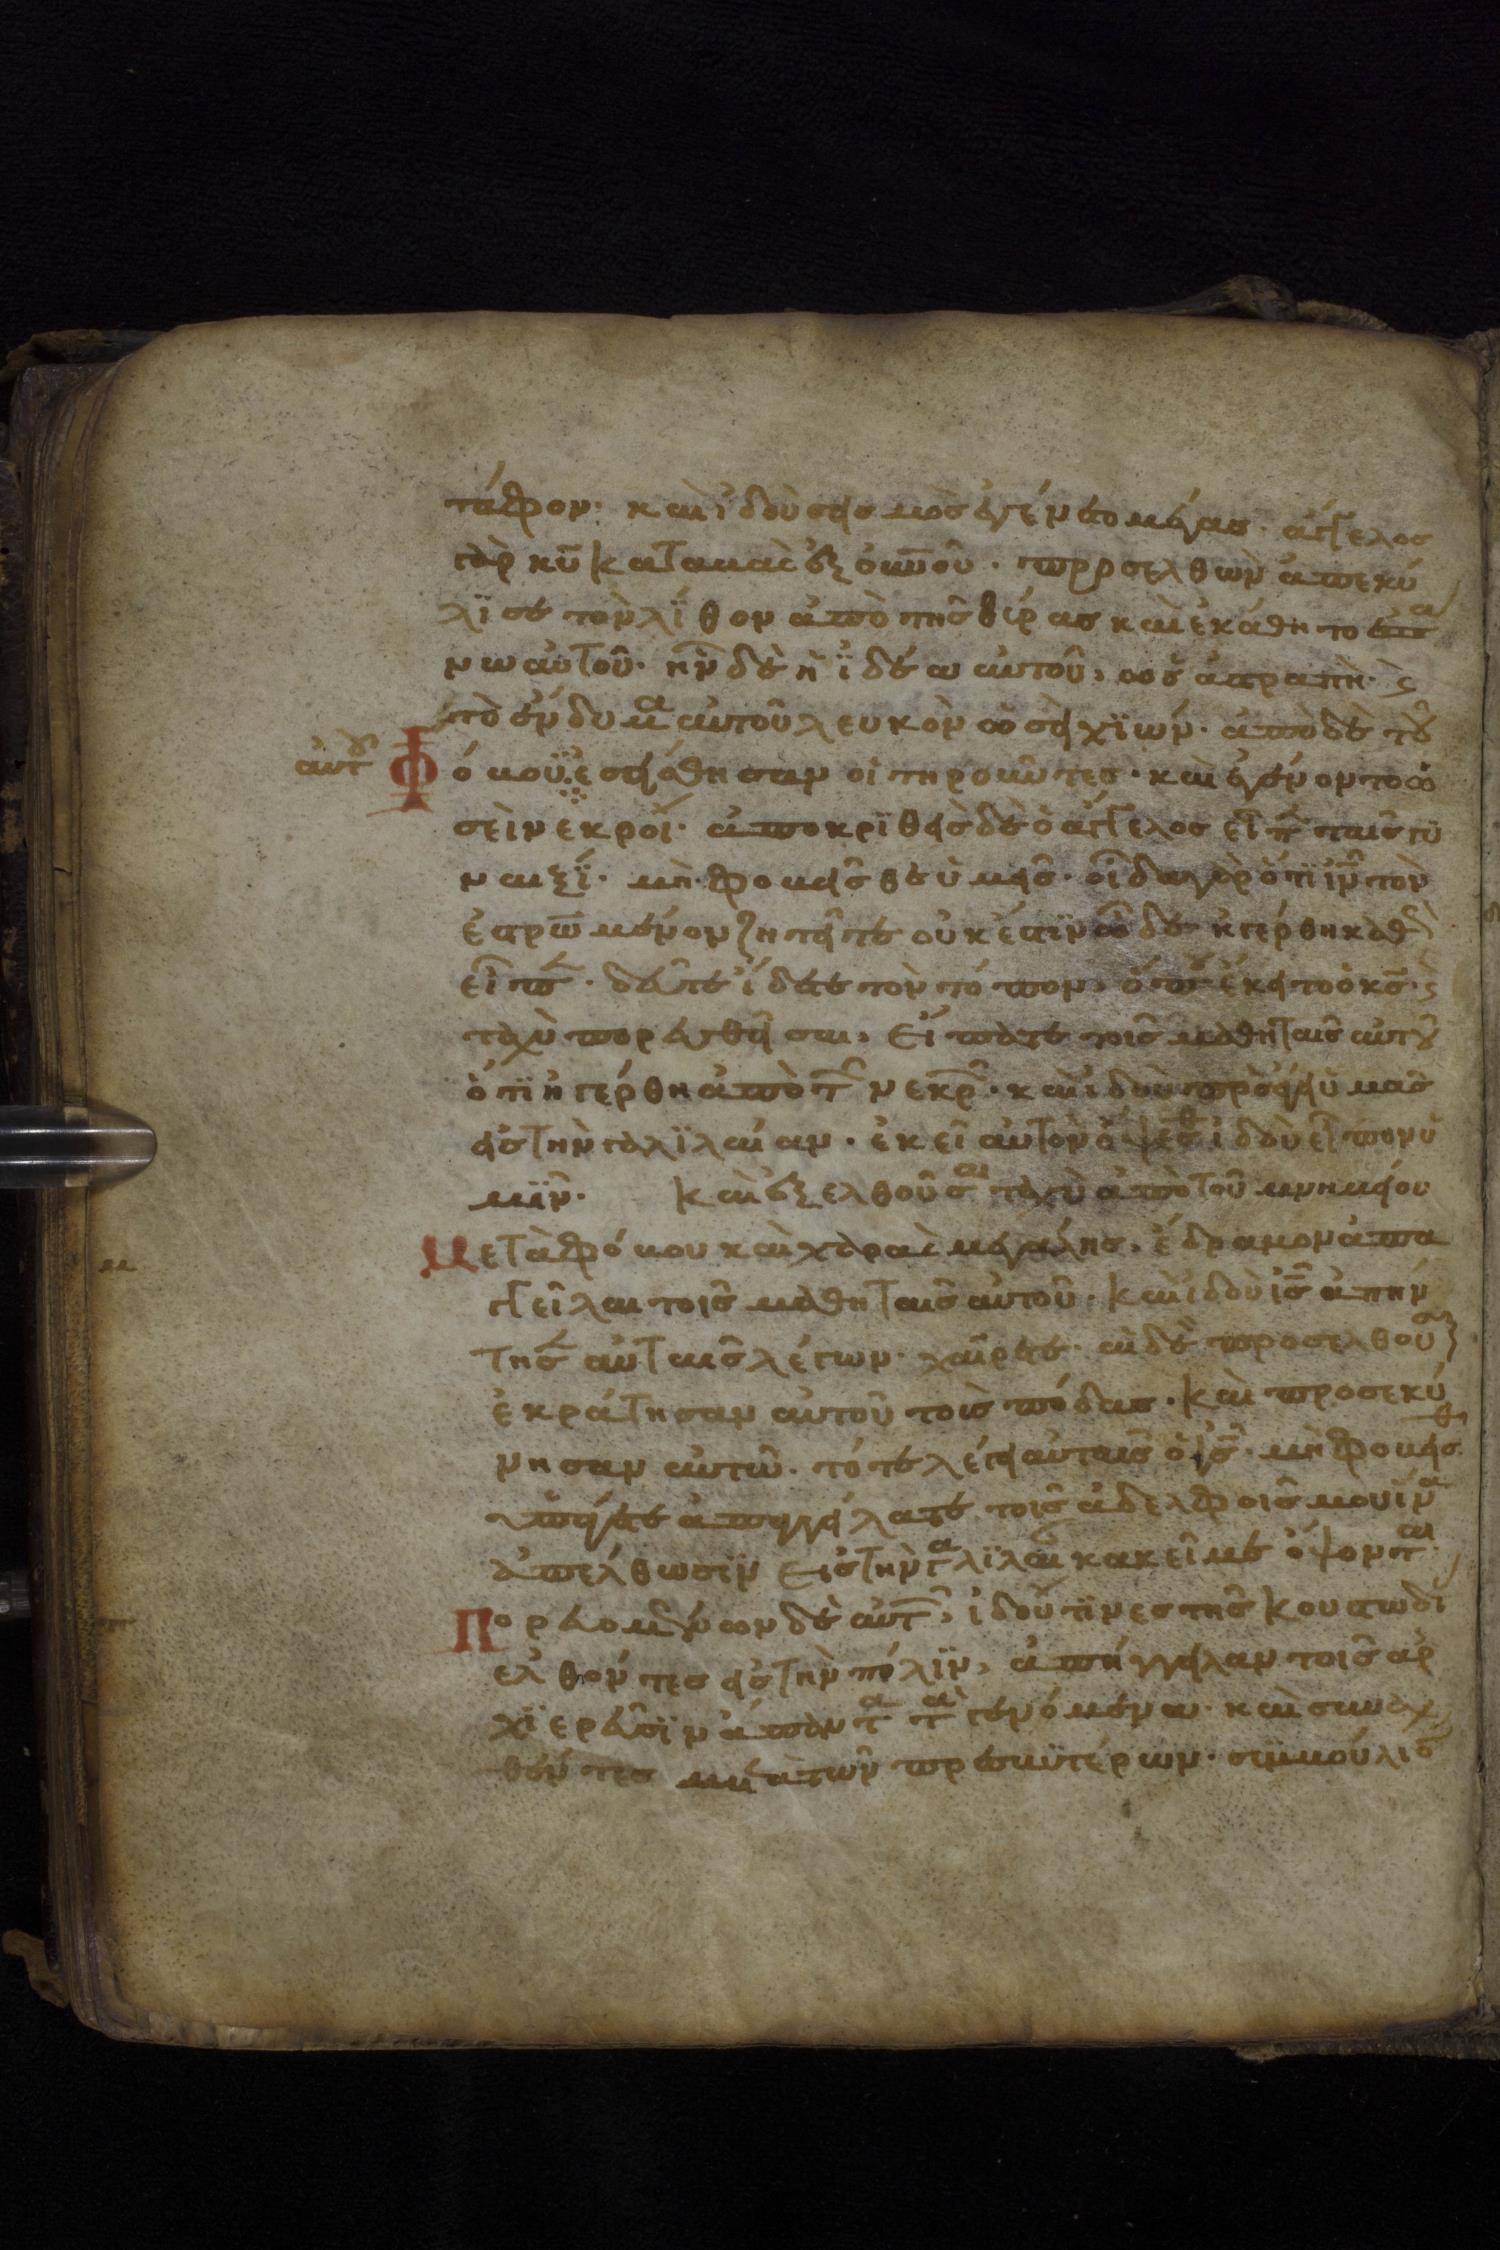 τάφον· καὶ ἰδοὺ σεισμὸς ἐγένετο μέγας· ἄγγελος
γὰρ κ̅υ̅ καταβὰς ἐξ ο̅υ̅ν̅ο̅υ̅· προσελθὼν ἀπεκύ
λϊσε τὸν λίθον ἀπὸ τῆς θύρας καὶ ἐκάθητο ἐπά
νω αὐτοῦ· ἦν δὲ ἡ ἰδέα αὐτοῦ, ὡς ἀστραπὴ· ϗ
τὸ ἔνδυμα αὐτοῦ λευκὸν ὡσεὶ χϊών· ἀπὸ δὲ τοῦ
αὐτοῦ
Φόβου ἐσείσθησαν οἱ τηροῦντες· καὶ ἐγένοντο ὡ
σεὶ νεκροί· ἀποκρϊθεὶς δὲ ὁ ἄγγελος εἶπε ταῖς γυ
ναιξί· μὴ φοβεῖσθε ὑμεῖς· οἶδα γὰρ ὅτι ι̅ν̅ τὸν
ἐσταυρωμένον ζητεῖτε οὐκ ἔστϊν ὧδε ἠγέρθη καθὼς
εἶπε· δεῦτε ἴδετε τὸν τόπον, ὅπου ἔκειτο ὁ κ̅ς̅· ϗ
ταχὺ πορευθεῖσαι, εἴπατε τοῖς μαθηταῖς αὐτοῦ
ὅτϊ ἠγέρθη ἀπὸ τῶν νεκρῶν· καὶ ἰδοὺ προάγει ὑμᾶς
εἰς τὴν γαλϊλαίαν· ἐκεῖ αὐτὸν ὄψεσθε ἰδοὺ εἶπον ὑ
μῖν· καὶ ἐξελθοῦσαι ταχὺ ἀπὸ τοῦ μνημείου
Μετὰ φόβου καὶ χαρᾶς μεγάλης, ἔδραμον ἀπα
γγεῖλαι τοῖς μαθηταῖς αὐτοῦ· καὶ ἰδοὺ ι̅ς̅ ἀπήν
τησεν αὐταῖς λέγων· χαίρετε· αἱ δὲ προσελθοῦσαι
ἐκράτησαν αὐτοῦ τοὺς πόδας· καὶ προσεκύ
νησαν αὐτῶ· τότε λέγει αὐταῖς ὁ ι̅ς̅· μὴ φοβεῖσθε
ὑπάγετε ἀπαγγείλατε τοῖς ἀδελφοῖς μου ἵνα
ἀπέλθωσϊν εἰς τὴν γαλϊλαίαν κακεῖ με ὄψονται·
Πορευομένων δὲ αὐτῶν, ἰδού τϊνες τῆς κουστωδί
ελθόντες εἰς τὴν πόλϊν, ἀπήγγειλαν τοῖς ἀρ
χϊερεῦσϊν ἅπαντα τὰ γενόμενα· καὶ συναχ
θέντες μετὰ τῶν πρεσβυτέρων· συμβούλιον